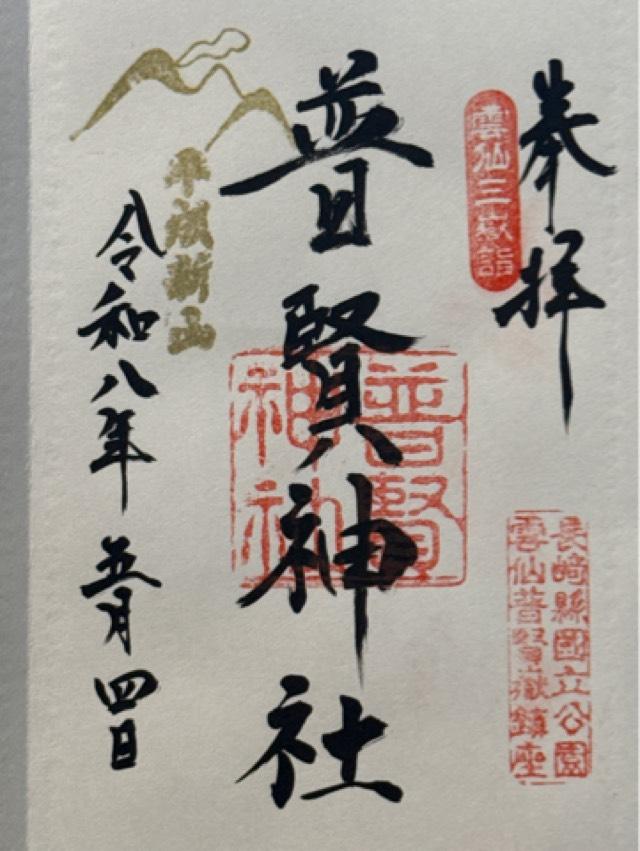 奉拝
雲仙三嶽詣
長崎縣國立公園
雲仙普賢嶽鎮座
普賢神社
普賢
神社
平成新山
令和八年五月四日